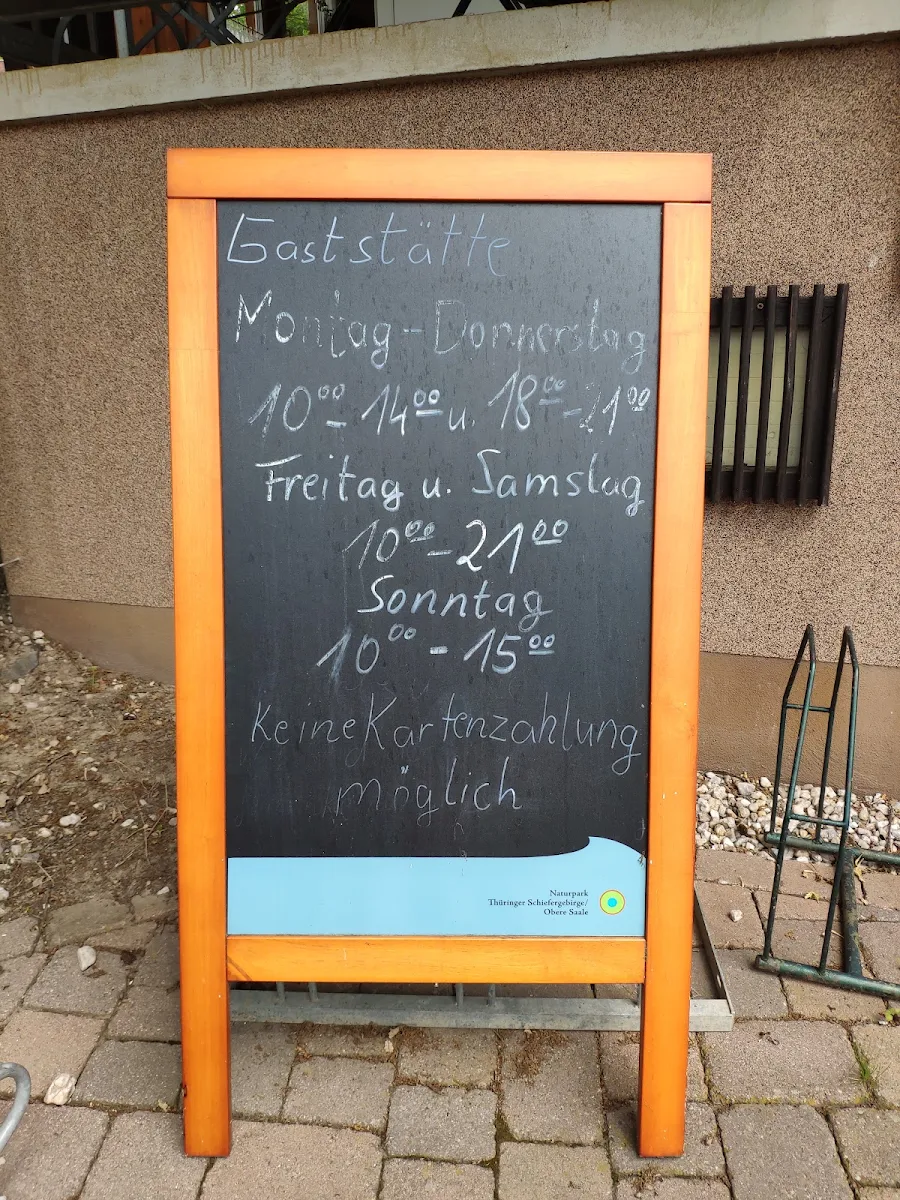 Gaststätte
Montag - Donnerstag
10⁰⁰ - 14⁰⁰ u. 18⁰⁰ - 21⁰⁰
Freitag u. Samstag
10⁰⁰ - 21⁰⁰
Sonntag
10⁰⁰ - 15⁰⁰
Keine Kartenzahlung
möglich
Naturpark
Thüringer Schiefergebirge/
Obere Saale